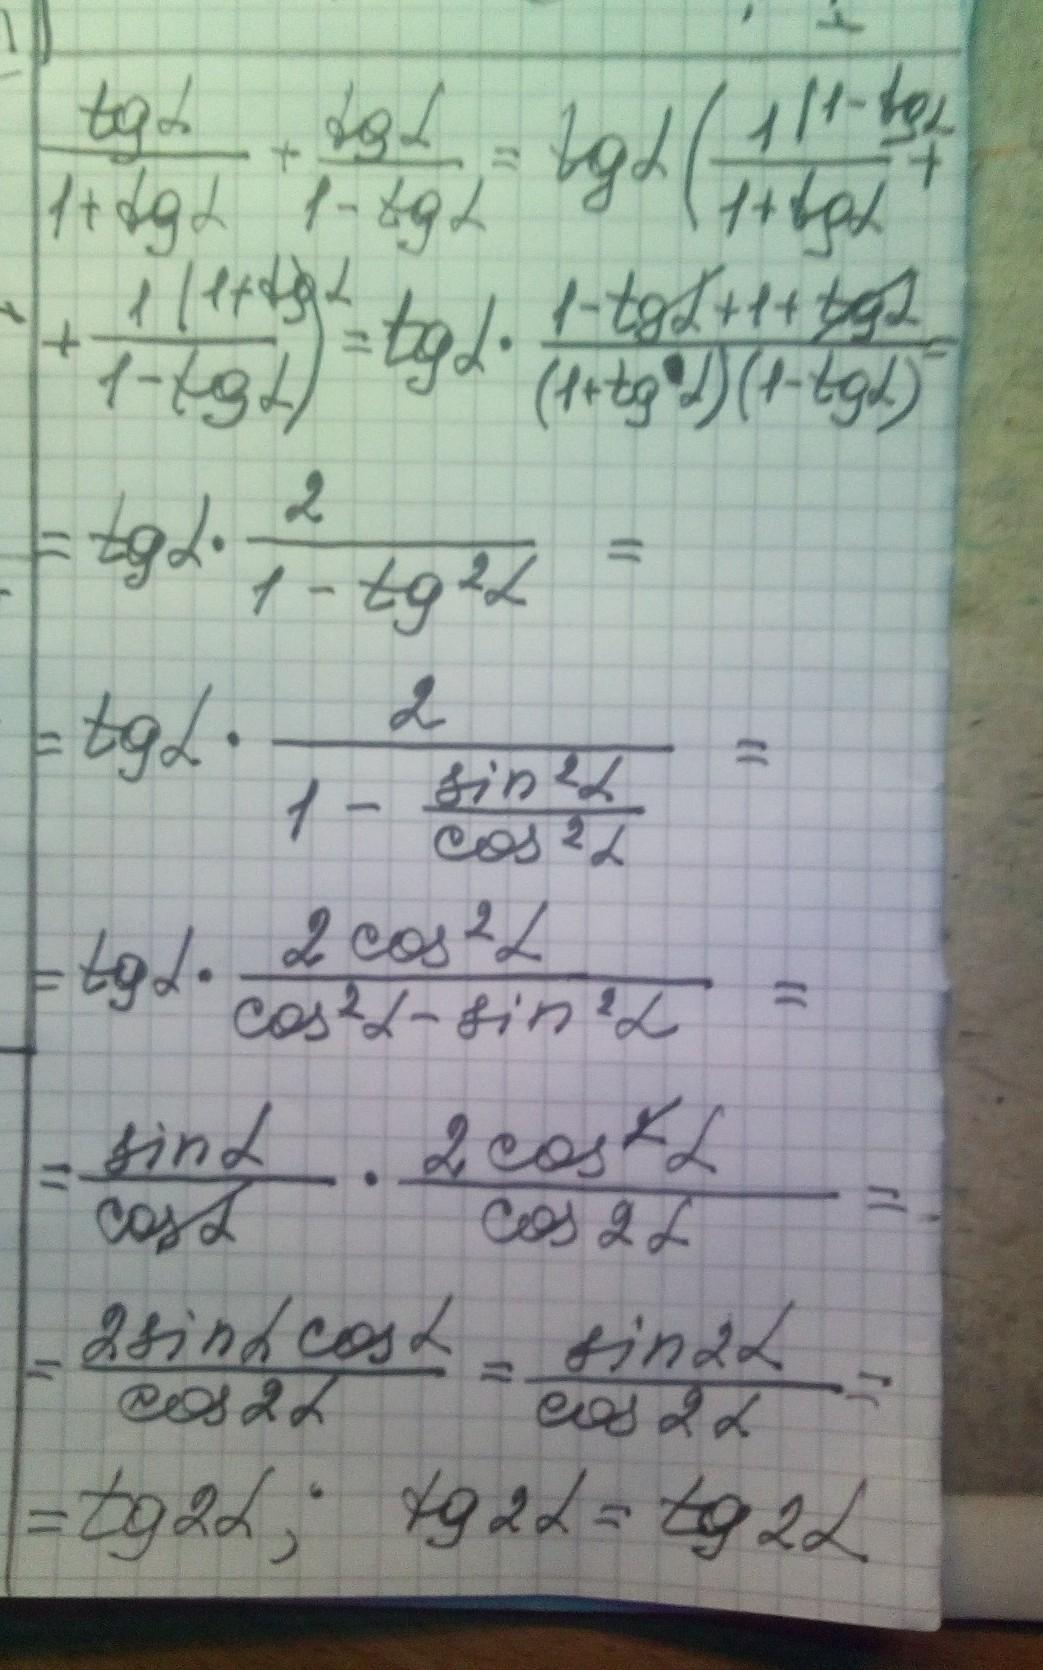 tgα/(1+tgα) + tgα/(1-tgα) = tgα(1|1-tgα/(1+tgα) +
+ 1|1+tgα/(1-tgα)) = tgα · (1-tgα+1+tgα)/((1+tgα)(1-tgα)) =
= tgα · 2/(1-tg²α) =
= tgα · 2/(1 - sin²α/cos²α) =
= tgα · 2cos²α/(cos²α-sin²α) =
= sinα/cosα · 2cos²α/cos2α =
= 2sinαcosα/cos2α = sin2α/cos2α =
= tg2α; tg2α = tg2α